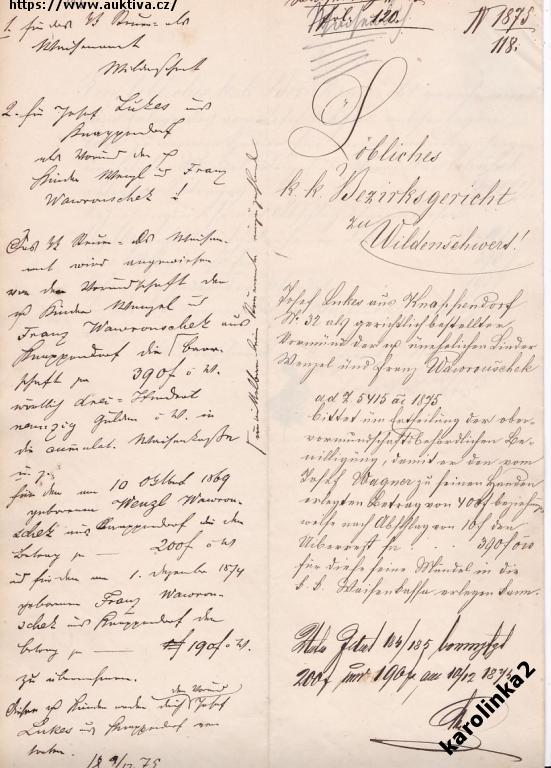 https://www.auktiva.cz/
1. für das
Waisenamt
Wildenschwert
2. für Josef Lukes aus
Knappendorf
als Vormund der
Kinder Wenzl u Franz
Wawrouschek!
wird angewiesen
von der Vormundschaft der
Kinder Wenzel u
Franz Wawrouschek aus
Knappendorf die Baar-
schaft pr 390f ö W.
wörtlich drei-Hundert
neunzig Gulden ö W. in
die cumulat. Waisenkasse
u. z.
für den am 10 1869
geborenen Wenzl Wawrou-
schek aus Knappendorf die den
Betrag pr — 200f ö W
und für den am 1. Dezember 1874
geborenen Franz Wawrou-
schek aus Knappendorf den
Betrag pr — 190f ö W.
zu übernehmen.
Kinder werden durch Josef
den Vormund
Lukes aus Knappendorf ver-
treten.
75
120.
IV 1875
118.
Löbliches
k. k. Bezirksgericht
zu
Wildenschwert!
Josef Lukes aus Knappendorf
N. 32 als gerichtlich bestellter
Vormund der unehelichen Kinder
Wenzel und Franz Wawrouschek
a. d. Z. 5415 1875
bittet um Ertheilung der ober-
vormundschaftsbehördlichen Be-
willigung, damit er den vom
Josef Wagner zu seinen Handen
erlegten Betrag von 400f beziehungs
weise nach Abschlag von 10f den
Ueberrest pr . . 390f öW
für diese seine Mündel in die
k. k. Waisenkassa erlegen kann.
184/185
200f und 190f am 10/12 1875
karolinka2